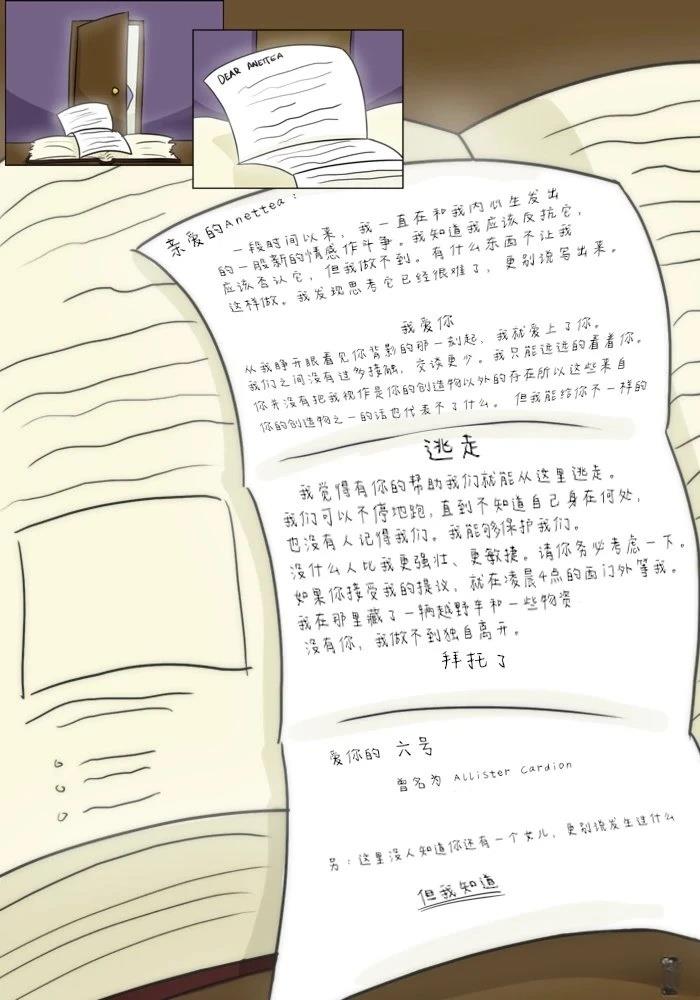 DEAR ANETTEA
亲爱的Anettea：
一段时间以来，我一直在和我内心生发出
的一股新的情感作斗争。我知道我应该反抗它，
应该否认它，但我做不到。有什么东西不让我
这样做。我发现思考它已经很难了，更别说写出来。
我爱你
从我睁开眼看见你背影的那一刻起，我就爱上了你。
我们之间没有过多接触，交谈更少。我只能远远的看着你。
你先没有把我视作是你的创造物以外的存在所以这些来自
你的创造物之一的话也代表不了什么。但我能给你不一样的
逃走
我觉得有你的帮助我们就能从这里逃走。
我们可以不停地跑，直到不知道自己身在何处，
也没有人记得我们。我能够保护我们。
没什么人比我更强壮、更敏捷。请你务必考虑一下。
如果你接受我的提议，就在凌晨4点的西门外等我。
我在那里藏了一辆越野车和一些物资
没有你，我做不到独自离开。
拜托了
爱你的 六号
曾名为 Allister Cardion
另：这里没人知道你还有一个女儿，更别说发生过什么
但我知道